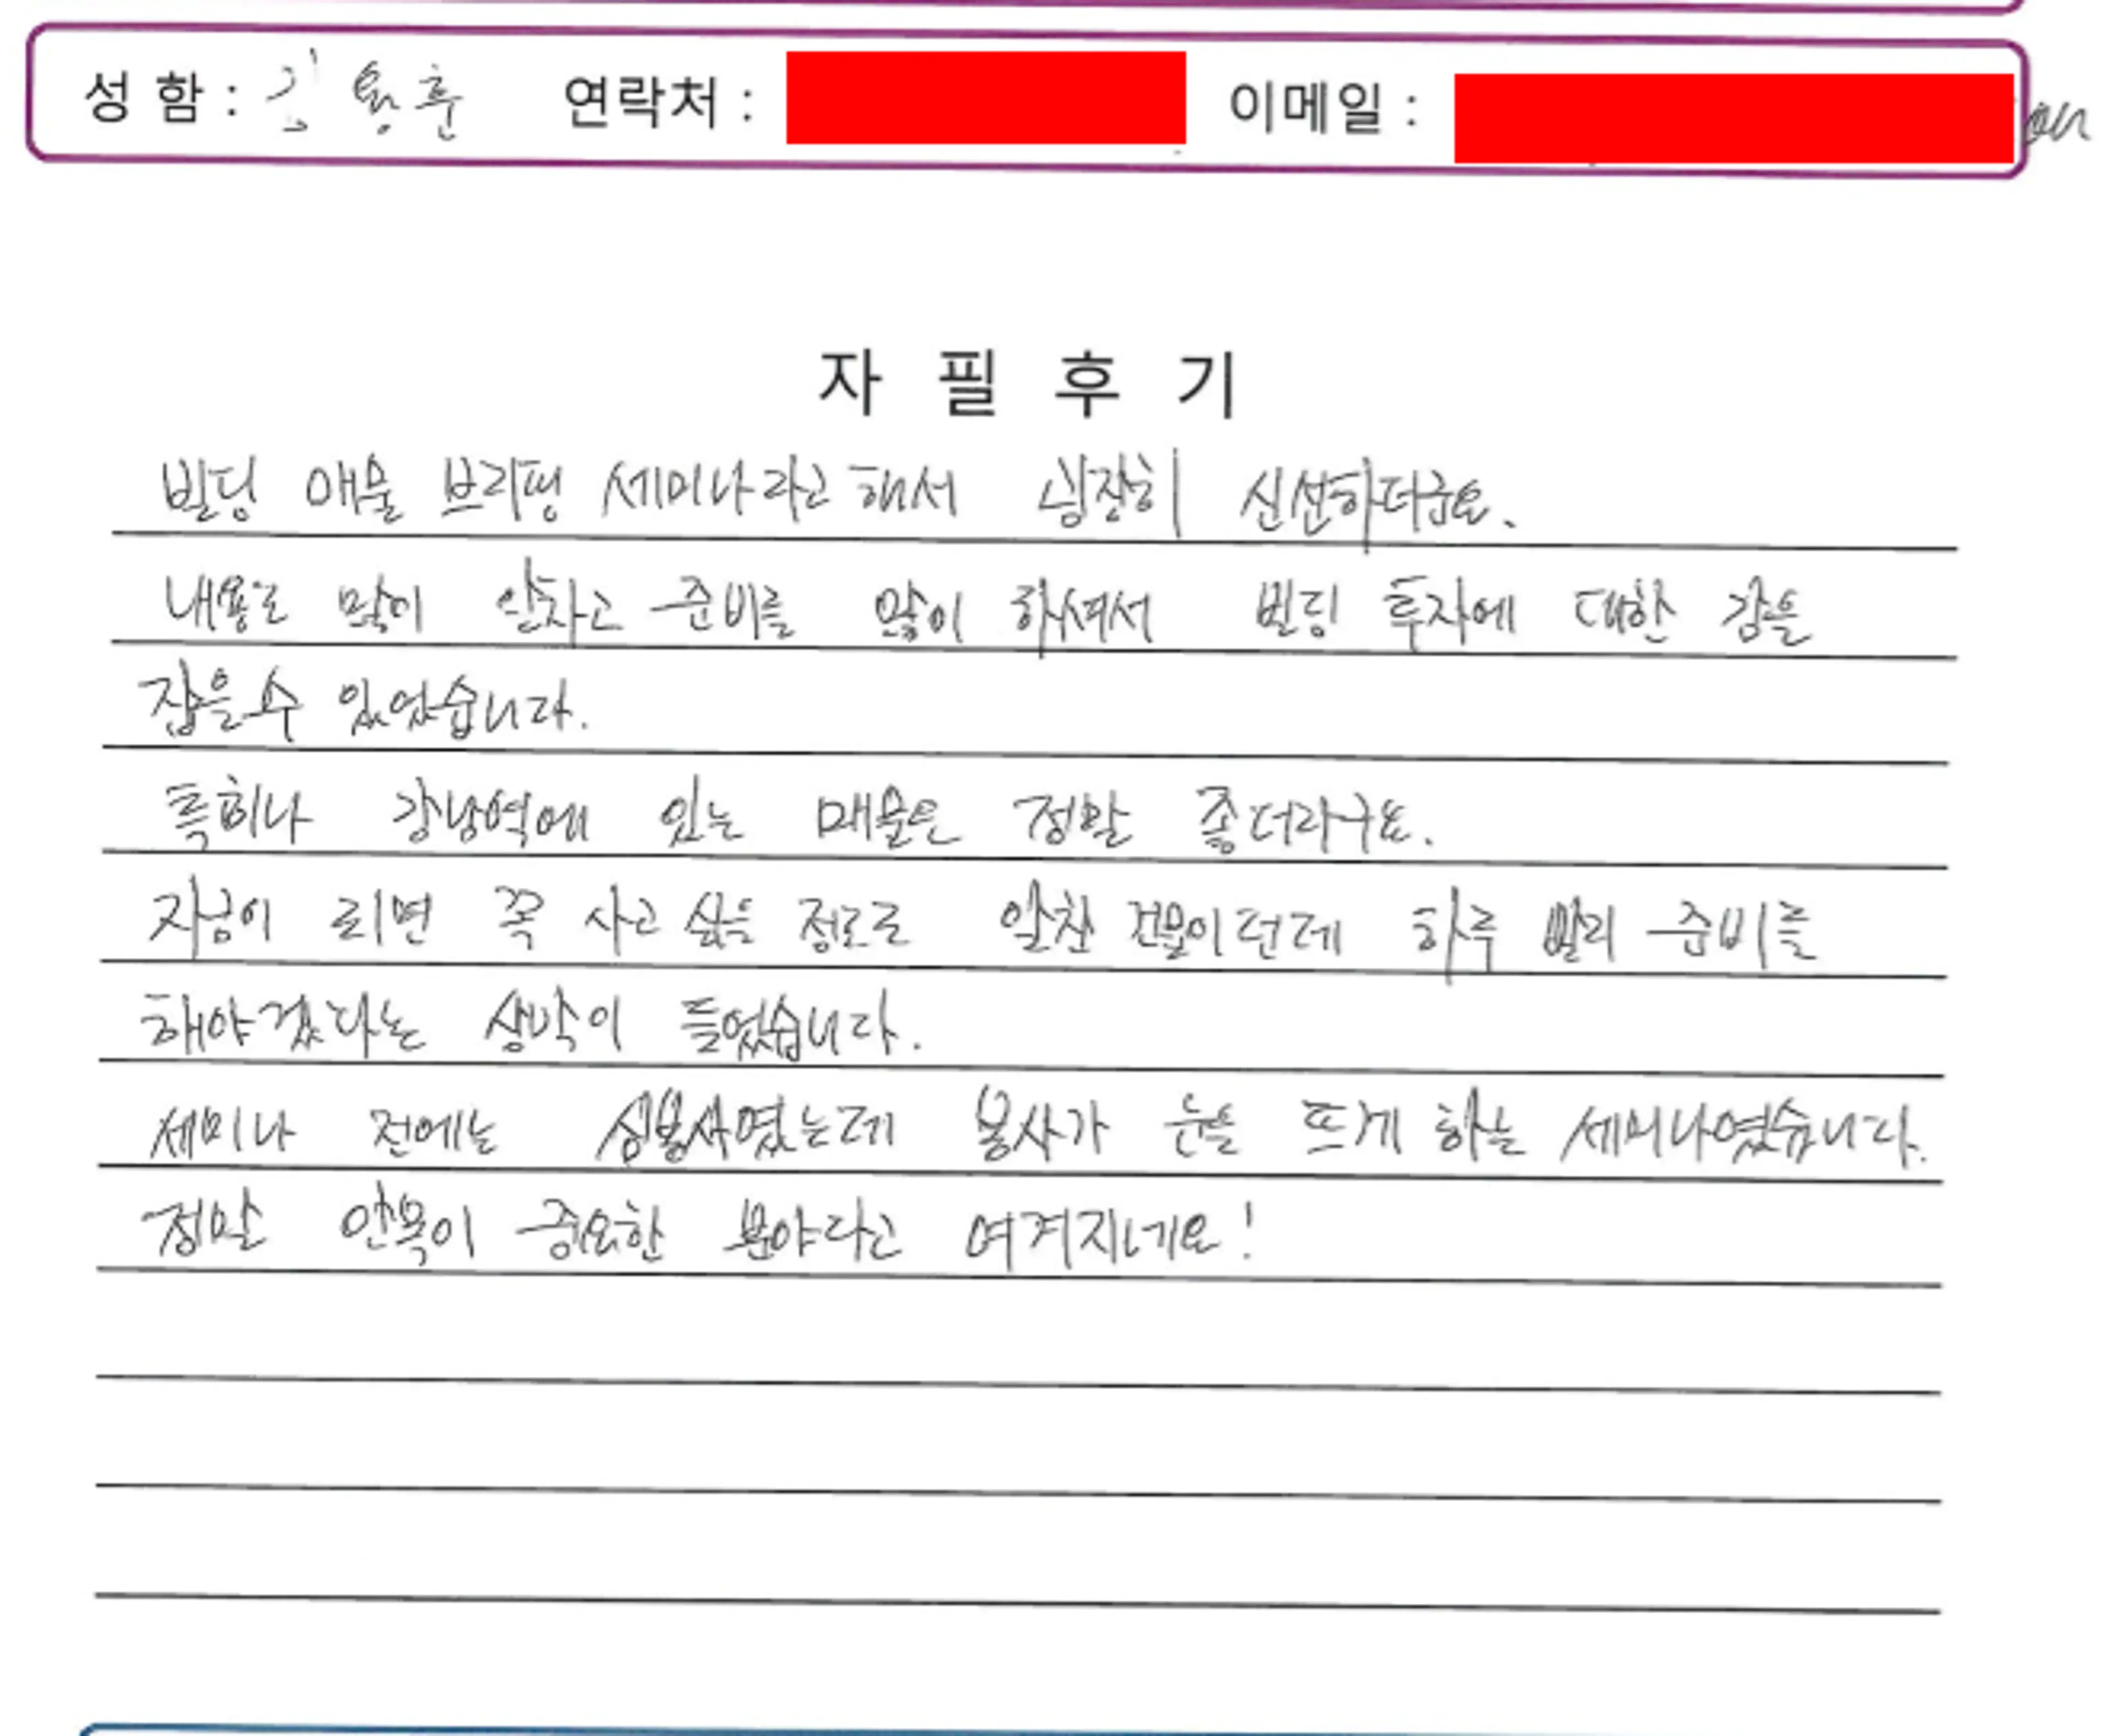 성 함 : 김용훈 연락처 : 이메일 :
자 필 후 기
빌딩 매물 브리핑 세미나라고 해서 굉장히 신선하더군요.
내용도 많이 알차고 준비를 많이 하셔서 빌딩 투자에 대한 감을
잡을 수 있었습니다.
특히나 강남역에 있는 매물은 정말 좋더라구요.
자금이 되면 꼭 사고 싶을 정도로 알찬 건물이던데 하루 빨리 준비를
해야겠다는 생각이 들었습니다.
세미나 전에는 심봉사였는데 봉사가 눈을 뜨게 하는 세미나였습니다.
정말 안목이 중요한 분야라고 여겨지네요!